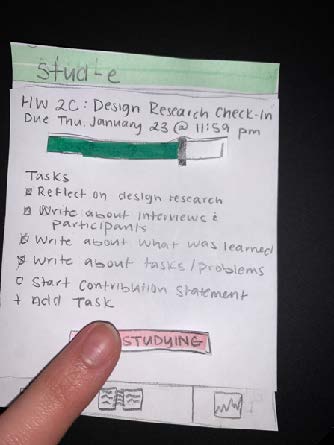 stud-e
HW 2C: Design Research Check-In
Due Thu, January 23 @ 11:59 pm
Tasks
Reflect on design research
Write about interviews &
participants
Write about what was learned
Write about tasks/problems
Start Contribution Statement
+ Add Task
STUDYING